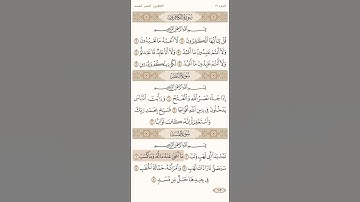 الكافرون، النصر، المسد
سُورَةُ الكَافِرُونَ
بِسْمِ اللَّهِ الرَّحْمَٰنِ الرَّحِيمِ
قُلْ يَا أَيُّهَا الْكَافِرُونَ ١ لَا أَعْبُدُ مَا تَعْبُدُونَ ٢
وَلَا أَنتُمْ عَابِدُونَ مَا أَعْبُدُ ٣ وَلَا أَنَا عَابِدٌ مَّا عَبَدتُّمْ ٤
وَلَا أَنتُمْ عَابِدُونَ مَا أَعْبُدُ ٥ لَكُمْ دِينُكُمْ وَلِيَ دِينِ ٦
سُورَةُ النَّصْرِ
بِسْمِ اللَّهِ الرَّحْمَٰنِ الرَّحِيمِ
إِذَا جَاءَ نَصْرُ اللَّهِ وَالْفَتْحُ ١ وَرَأَيْتَ النَّاسَ
يَدْخُلُونَ فِي دِينِ اللَّهِ أَفْوَاجًا ٢ فَسَبِّحْ بِحَمْدِ رَبِّكَ
وَاسْتَغْفِرْهُ إِنَّهُ كَانَ تَوَّابًا ٣
سُورَةُ المَسَدِ
بِسْمِ اللَّهِ الرَّحْمَٰنِ الرَّحِيمِ
تَبَّتْ يَدَا أَبِي لَهَبٍ وَتَبَّ ١ مَا أَغْنَىٰ عَنْهُ مَالُهُ وَمَا كَسَبَ ٢
سَيَصْلَىٰ نَارًا ذَاتَ لَهَبٍ ٣ وَامْرَأَتُهُ حَمَّالَةَ الْحَطَبِ ٤
فِي جِيدِهَا حَبْلٌ مِّن مَّسَدٍ ٥
٦٠٣